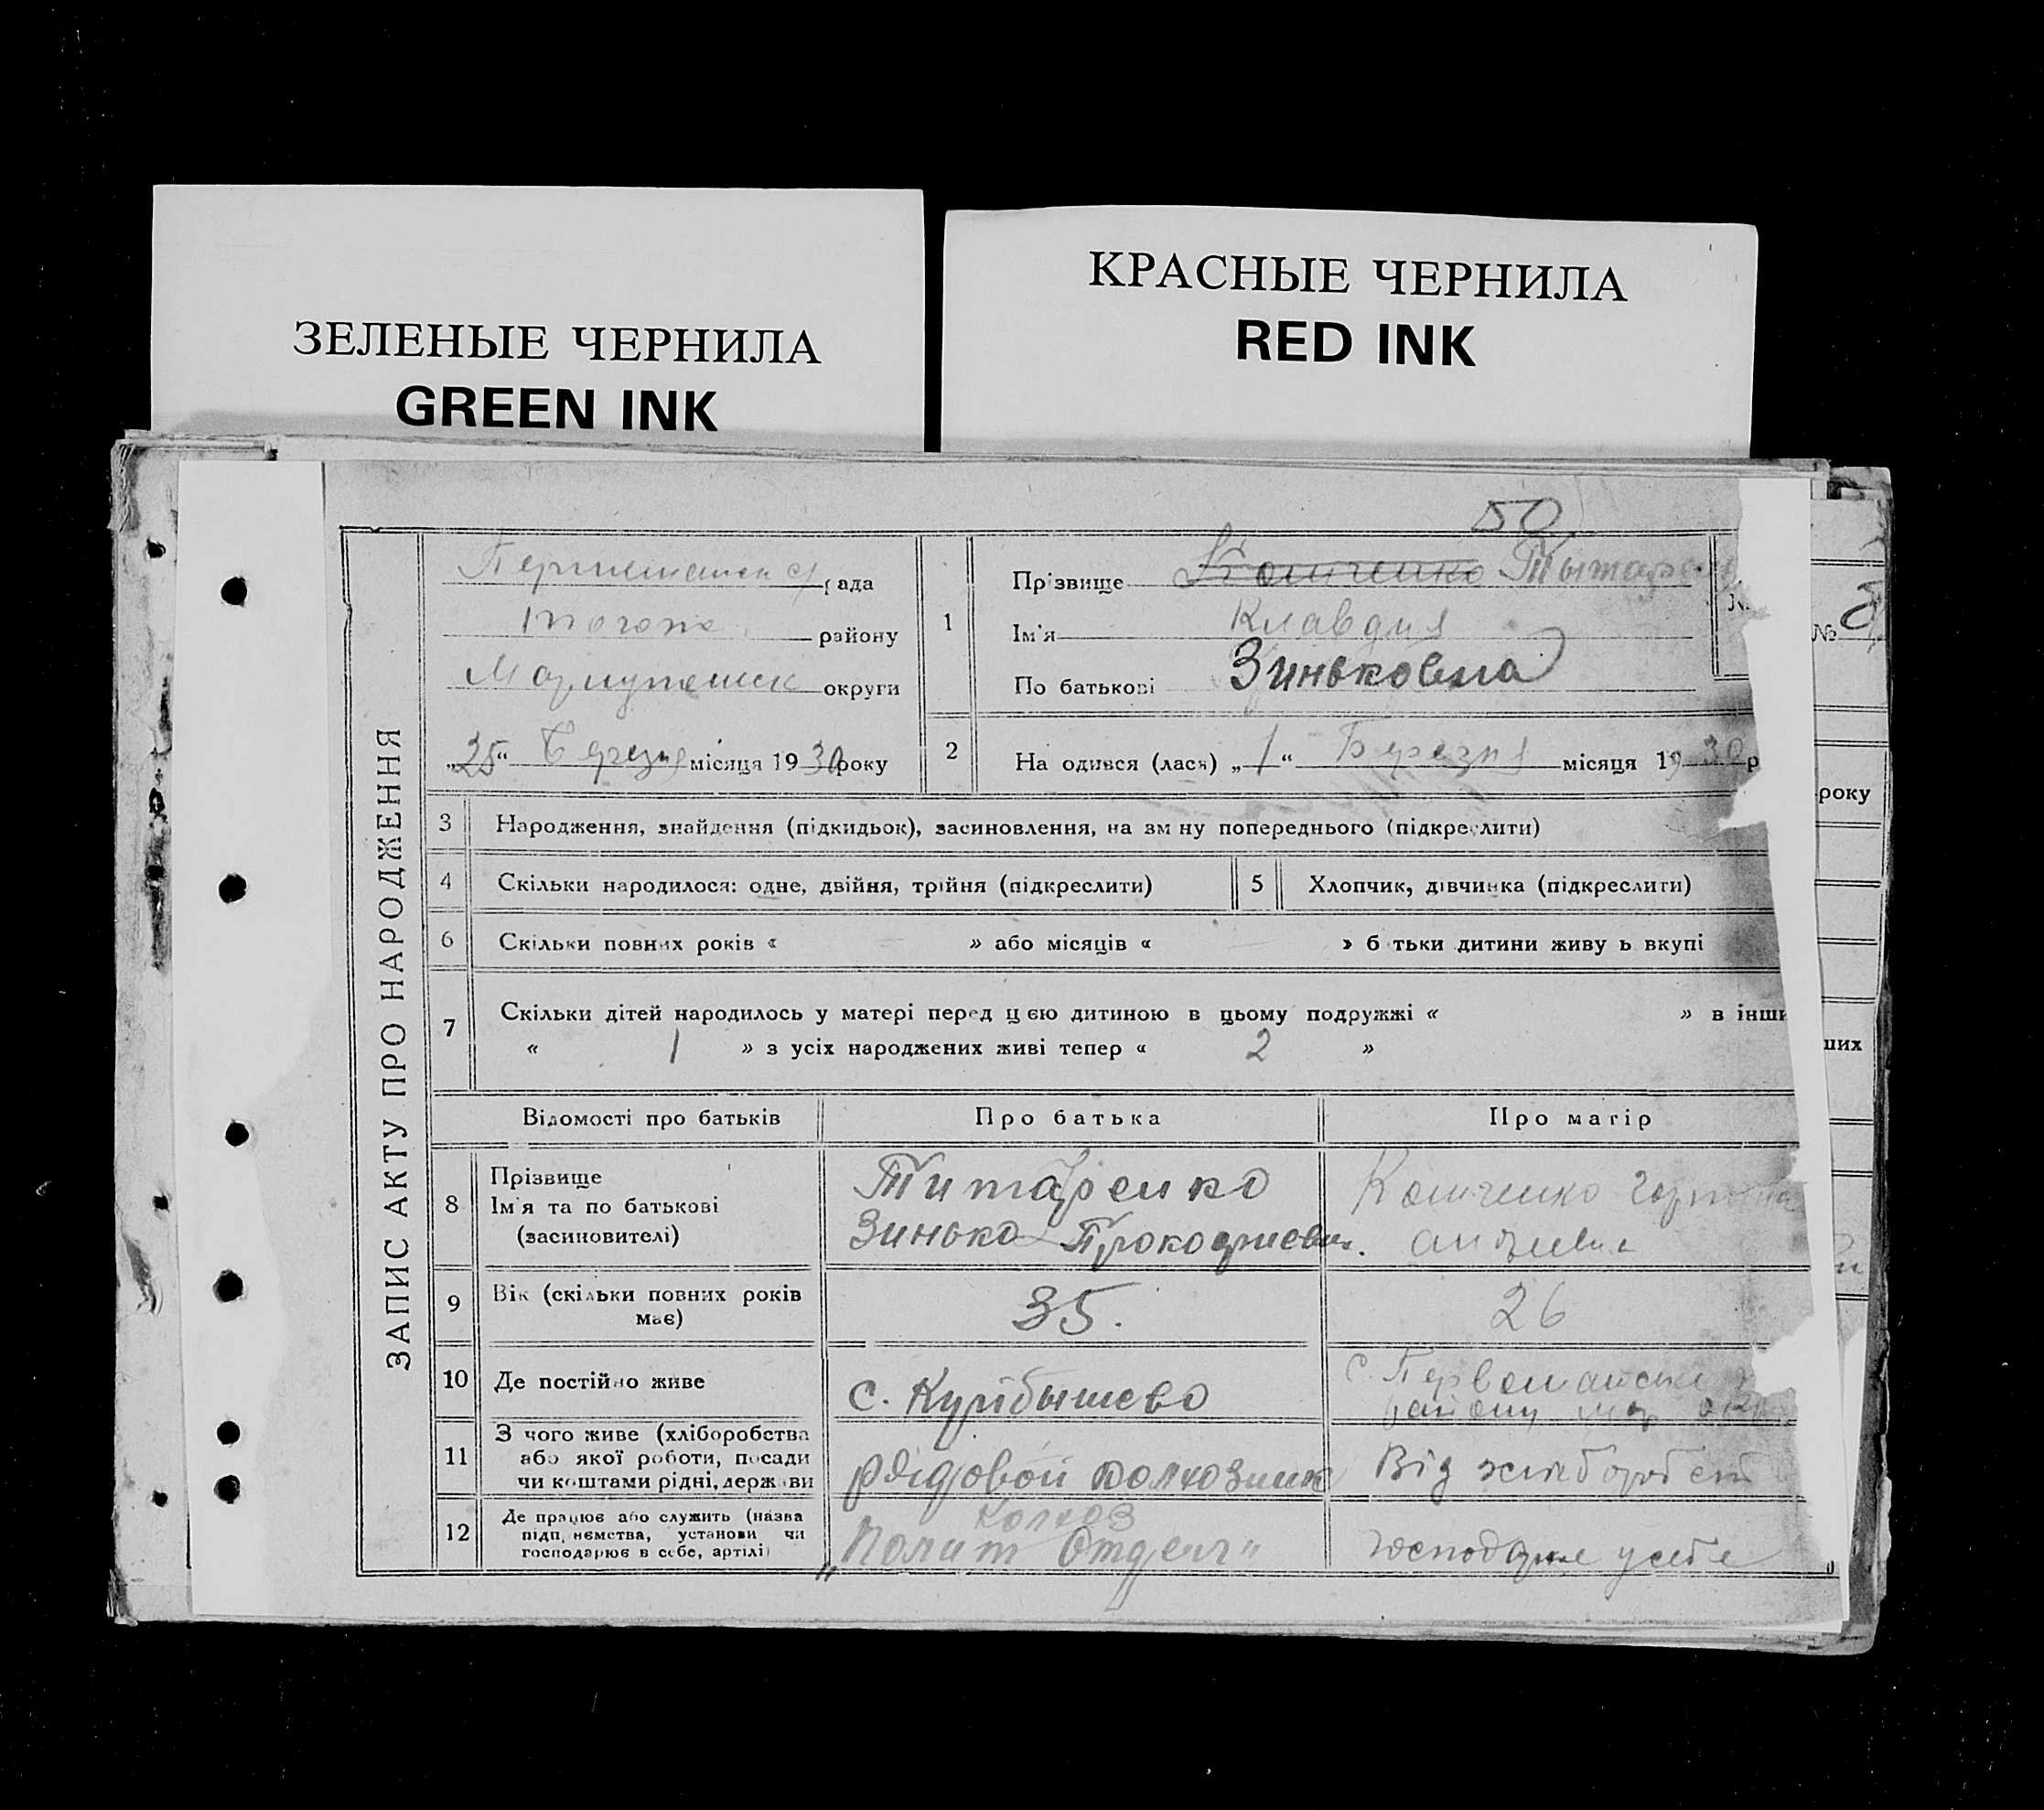 ЗЕЛЕНЫЕ ЧЕРНИЛА
GREEN INK
КРАСНЫЕ ЧЕРНИЛА
RED INK
50
ЗАПИС АКТУ ПРО НАРОДЖЕННЯ
рада
району
округи
„25“ Березня місяця 1930 року
1
Прізвище Костченко
Ім'я Клавдия
По батькові Зиньковна
№
№
2
На одився (лася) „1“ Березня місяця 1930 р
року
3
Народження, знайдення (підкидьок), засиновлення, на зм ну попереднього (підкреслити)
4
Скільки народилося: одне, двійня, трійня (підкреслити)
5
Хлопчик, дівчинка (підкреслити)
6
Скільки повних років « » або місяців « » б тьки дитини живу ь вкупі
7
Скільки дітей народилось у матері перед цею дитиною в цьому подружжі « » в інши
« 1 » з усіх народжених живі тепер « 2 »
ших
Відомості про батьків
Про батька
Про матір
8
Прізвище
Ім'я та по батькові
(засиновителі)
Титаренко
Зинько Прокофиевич.
9
Вік (скільки повних років
має)
35.
26
10
Де постійно живе
с. Куйбышево
с.
11
З чого живе (хліборобства
або якої роботи, посади
чи коштами рідні, держави
рядовой колхозник
Від
12
Де працює або служить (назва
підп иємства, установи чи
господарює в себе, артілі)
колхоз
„Полит Отдел“
господарює у себе